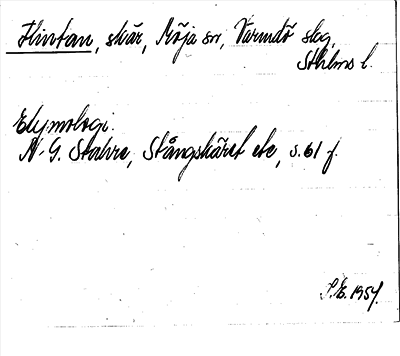 Flintan, skär, Möja sn, Värmdö skg,
Sthlms l.
Etymologi.
N. G. Stahre, Stångskäret etc, s. 61 f.
S.E. 1957.